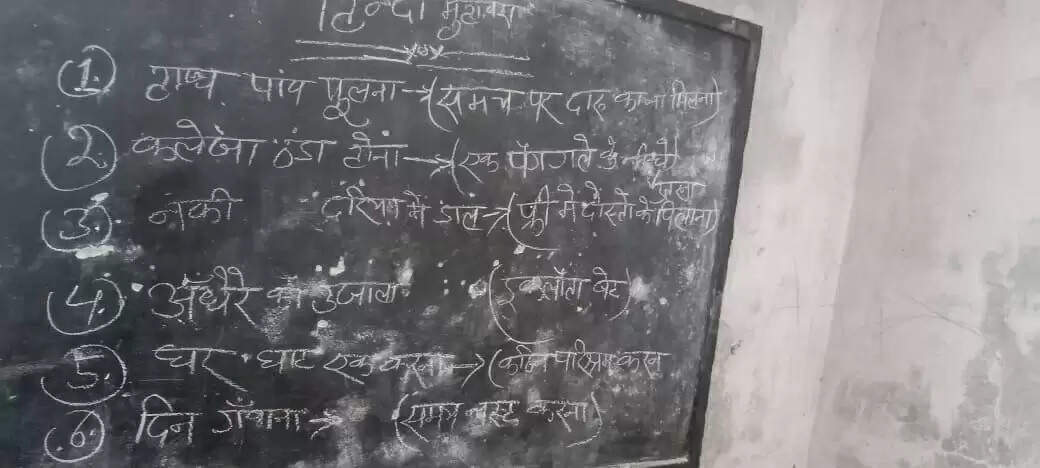 हिन्दी मुहावरा
1. हाथ पांव फूलना → (समय पर दारु का ना मिलना)
2. कलेजा ठंडा होना → (एक पेग गले के नीचे
3. नेकी दरिया में डाल → (फ्री में दोस्तो को पिलाना)
4. अँधेरे का उजाला (इकलौता बेटा)
5. घर घाट एक करना → (कठिन परिश्रम करना
6. दिन गँवाना → (समय नस्ट करना)